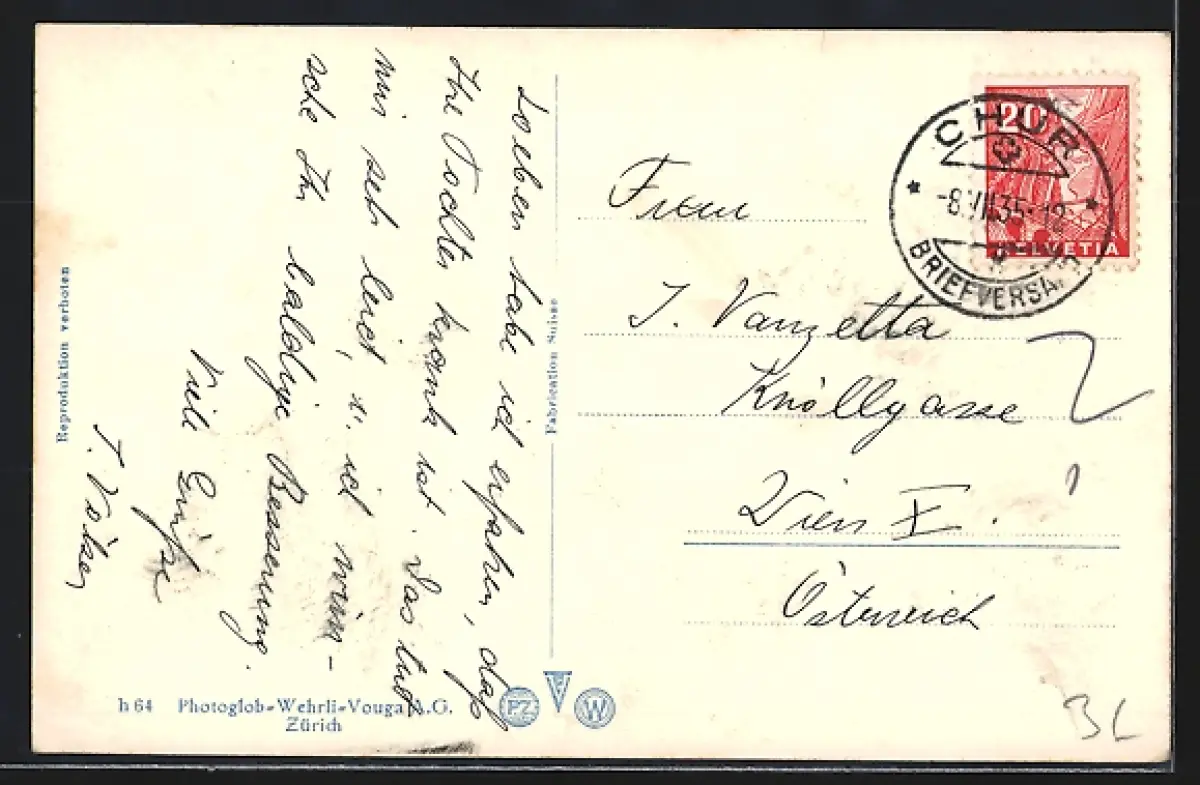 Soeben habe ich erfahren, daß
Ihre Tochter krank ist. Das tut
mir sehr leid, u. ich wün-
sche Ihr baldige Besserung.
Viele Grüße
Frau
J. Vanzetta
Knöllgasse
Wien X.
Österreich
20
HELVETIA
CHUR
-8.VII.35-12
BRIEFVERSAND
Reproduktion verboten
Fabrication Suisse
h 64 Photoglob-Wehrli-Vouga A.G.
Zürich
PZ
W
BL